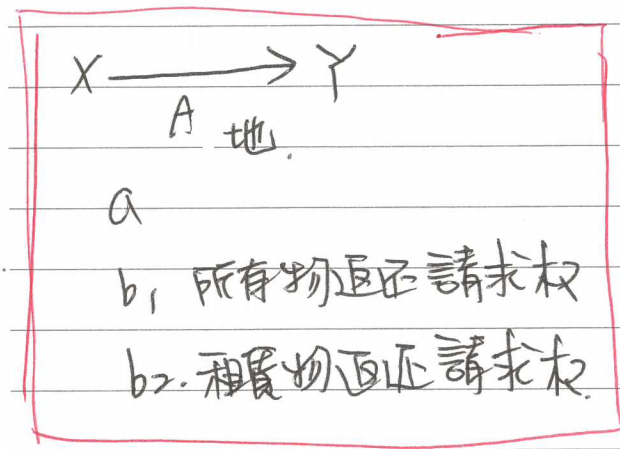 X → Y
A 地.
a
b1 所有物返还請求权
b2.租賃物返还請求权.